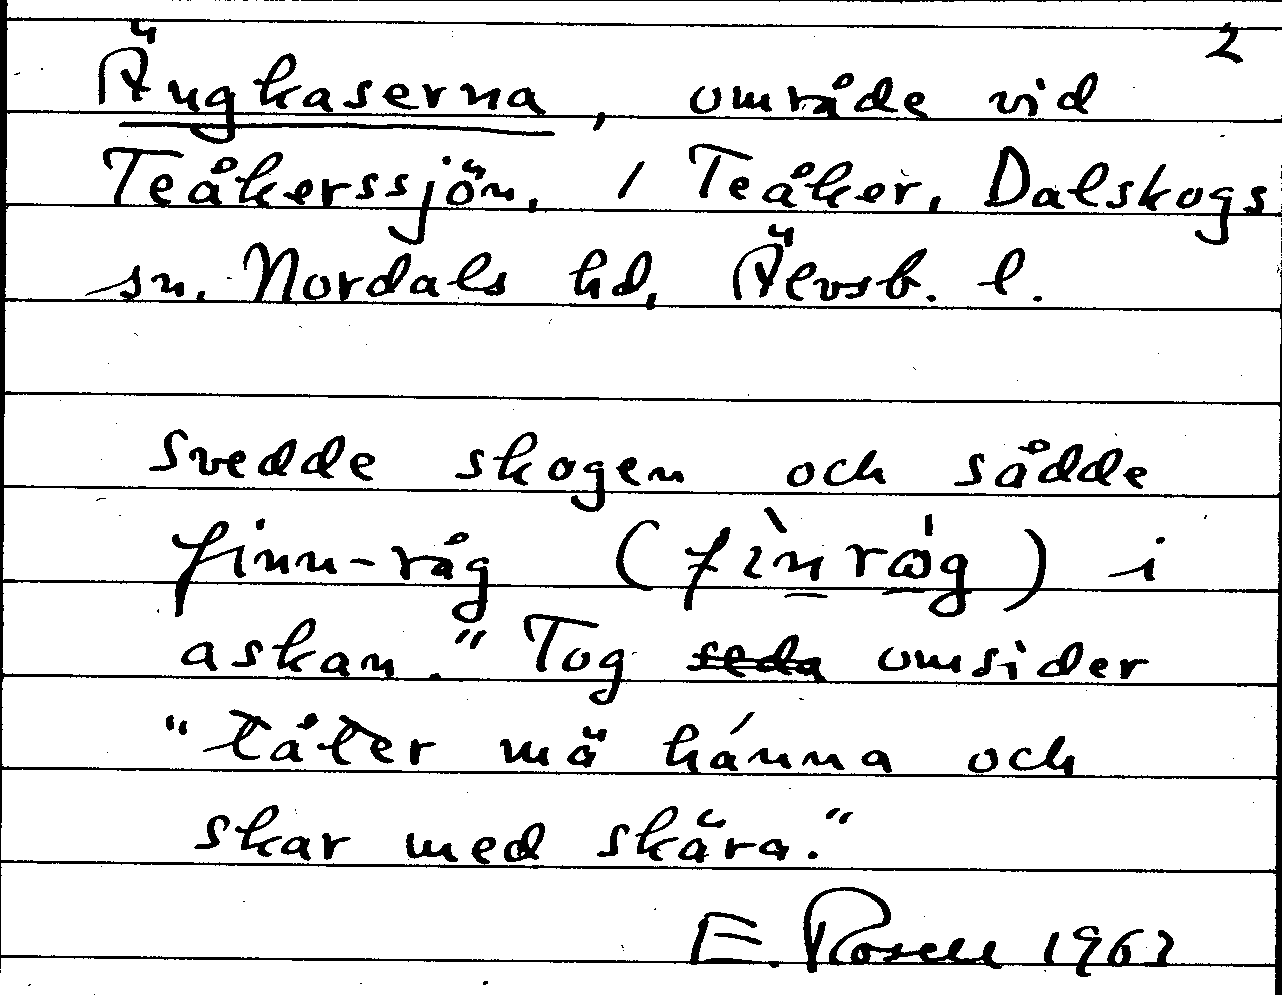 2
Ängkaserna, område vid
Teåkerssjön, / Teåker, Dalskogs
sn. Nordals hd, Älvsb. l.
svedde skogen och sådde
finn-råg (fìnrǻg) i
askan." Tog seda omsider
"tåter mä hánna och
skar med skära."
E. Rosell 1962